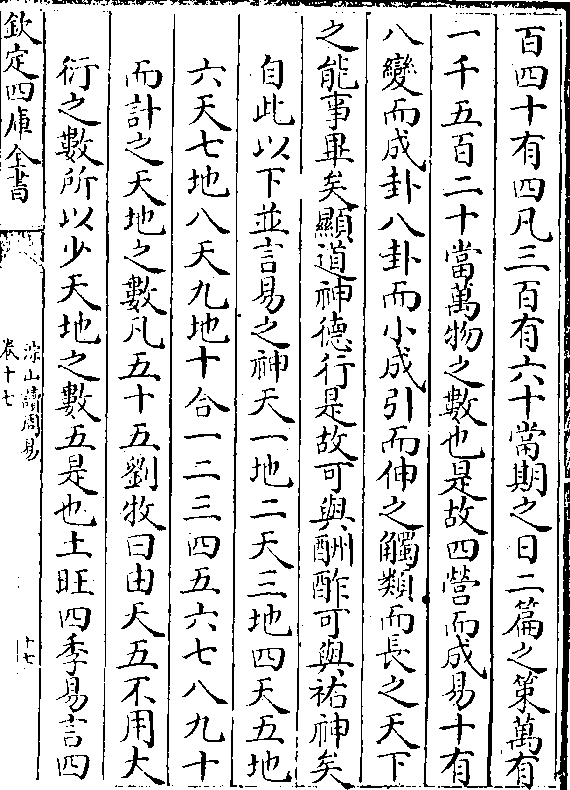 百四十有四凡三百有六十當期之日二篇之策萬有
一千五百二十當萬物之數也是故四營而成易十有
八變而成卦八卦而小成引而伸之觸類而長之天下
之能事畢矣顯道神德行是故可與酬酢可與祐神矣
自此以下並言易之神天一地二天三地四天五地
六天七地八天九地十合一二三四五六七八九十
而計之天地之數凡五十五劉牧曰由天五不用大
衍之數所以少天地之數五是也土旺四季易言四
欽定四庫全書
讀周易
卷十七
十七